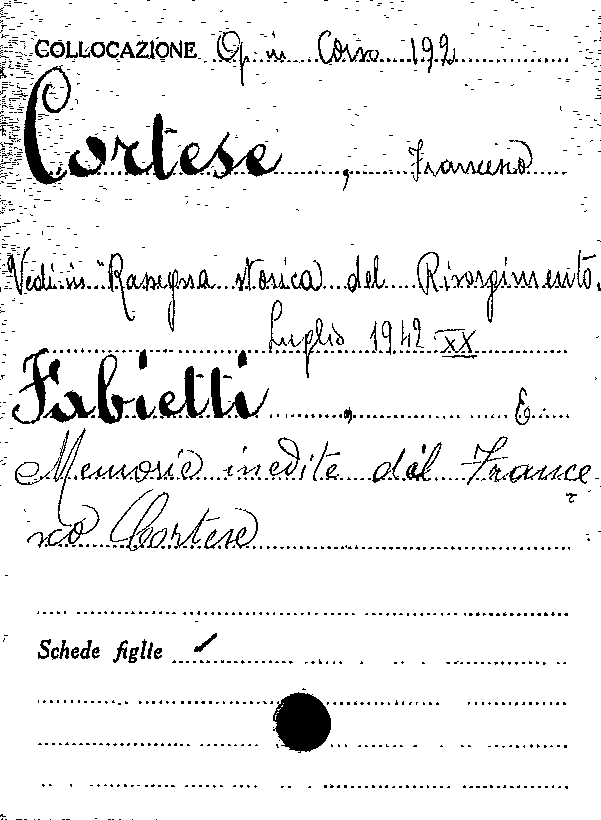 COLLOCAZIONE Op. in Corso 192
Cortese, Francesco
Vedi in "Rassegna storica del Risorgimento.
Luglio 1942 XX
Fabietti, E.
Memorie inedite di France
sco Cortese
Schede figlie ✓